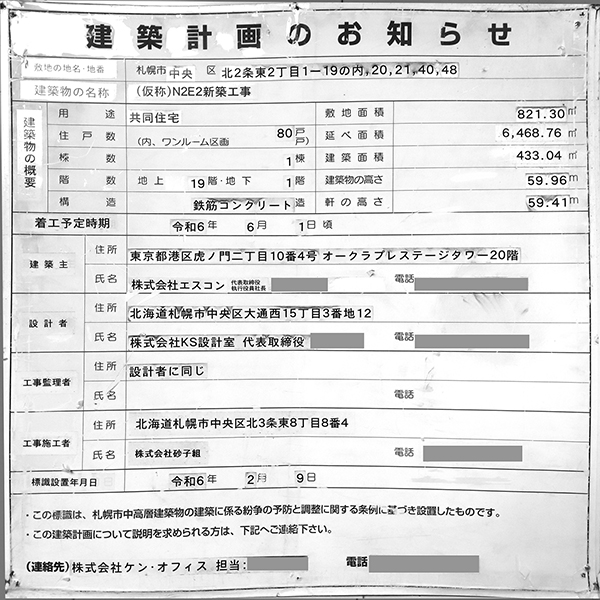 建築計画のお知らせ
敷地の地名・地番 札幌市 中央 区 北2条東2丁目1ー19の内,20,21,40,48
建築物の名称 (仮称)N2E2新築工事
建築物の概要
用途 共同住宅 敷地面積 821.30㎡
住戸数 80戸 (内、ワンルーム区画 戸) 延べ面積 6,468.76㎡
棟数 1棟 建築面積 433.04㎡
階数 地上 19階・地下 1階 建築物の高さ 59.96m
構造 鉄筋コンクリート造 軒の高さ 59.41m
着工予定時期 令和6年 6月 1日頃
建築主 住所 東京都港区虎ノ門二丁目10番4号 オークラプレステージタワー20階
氏名 株式会社エスコン 代表取締役 執行役員社長 電話
設計者 住所 北海道札幌市中央区大通西15丁目3番地12
氏名 株式会社KS設計室 代表取締役 電話
工事監理者 住所 設計者に同じ
氏名 電話
工事施工者 住所 北海道札幌市中央区北3条東8丁目8番4
氏名 株式会社砂子組 電話
標識設置年月日 令和6年 2月 9日
・この標識は、札幌市中高層建築物の建築に係る紛争の予防と調整に関する条例に基づき設置したものです。
・この建築計画について説明を求められる方は、下記へご連絡下さい。
(連絡先)株式会社ケン・オフィス 担当: 電話